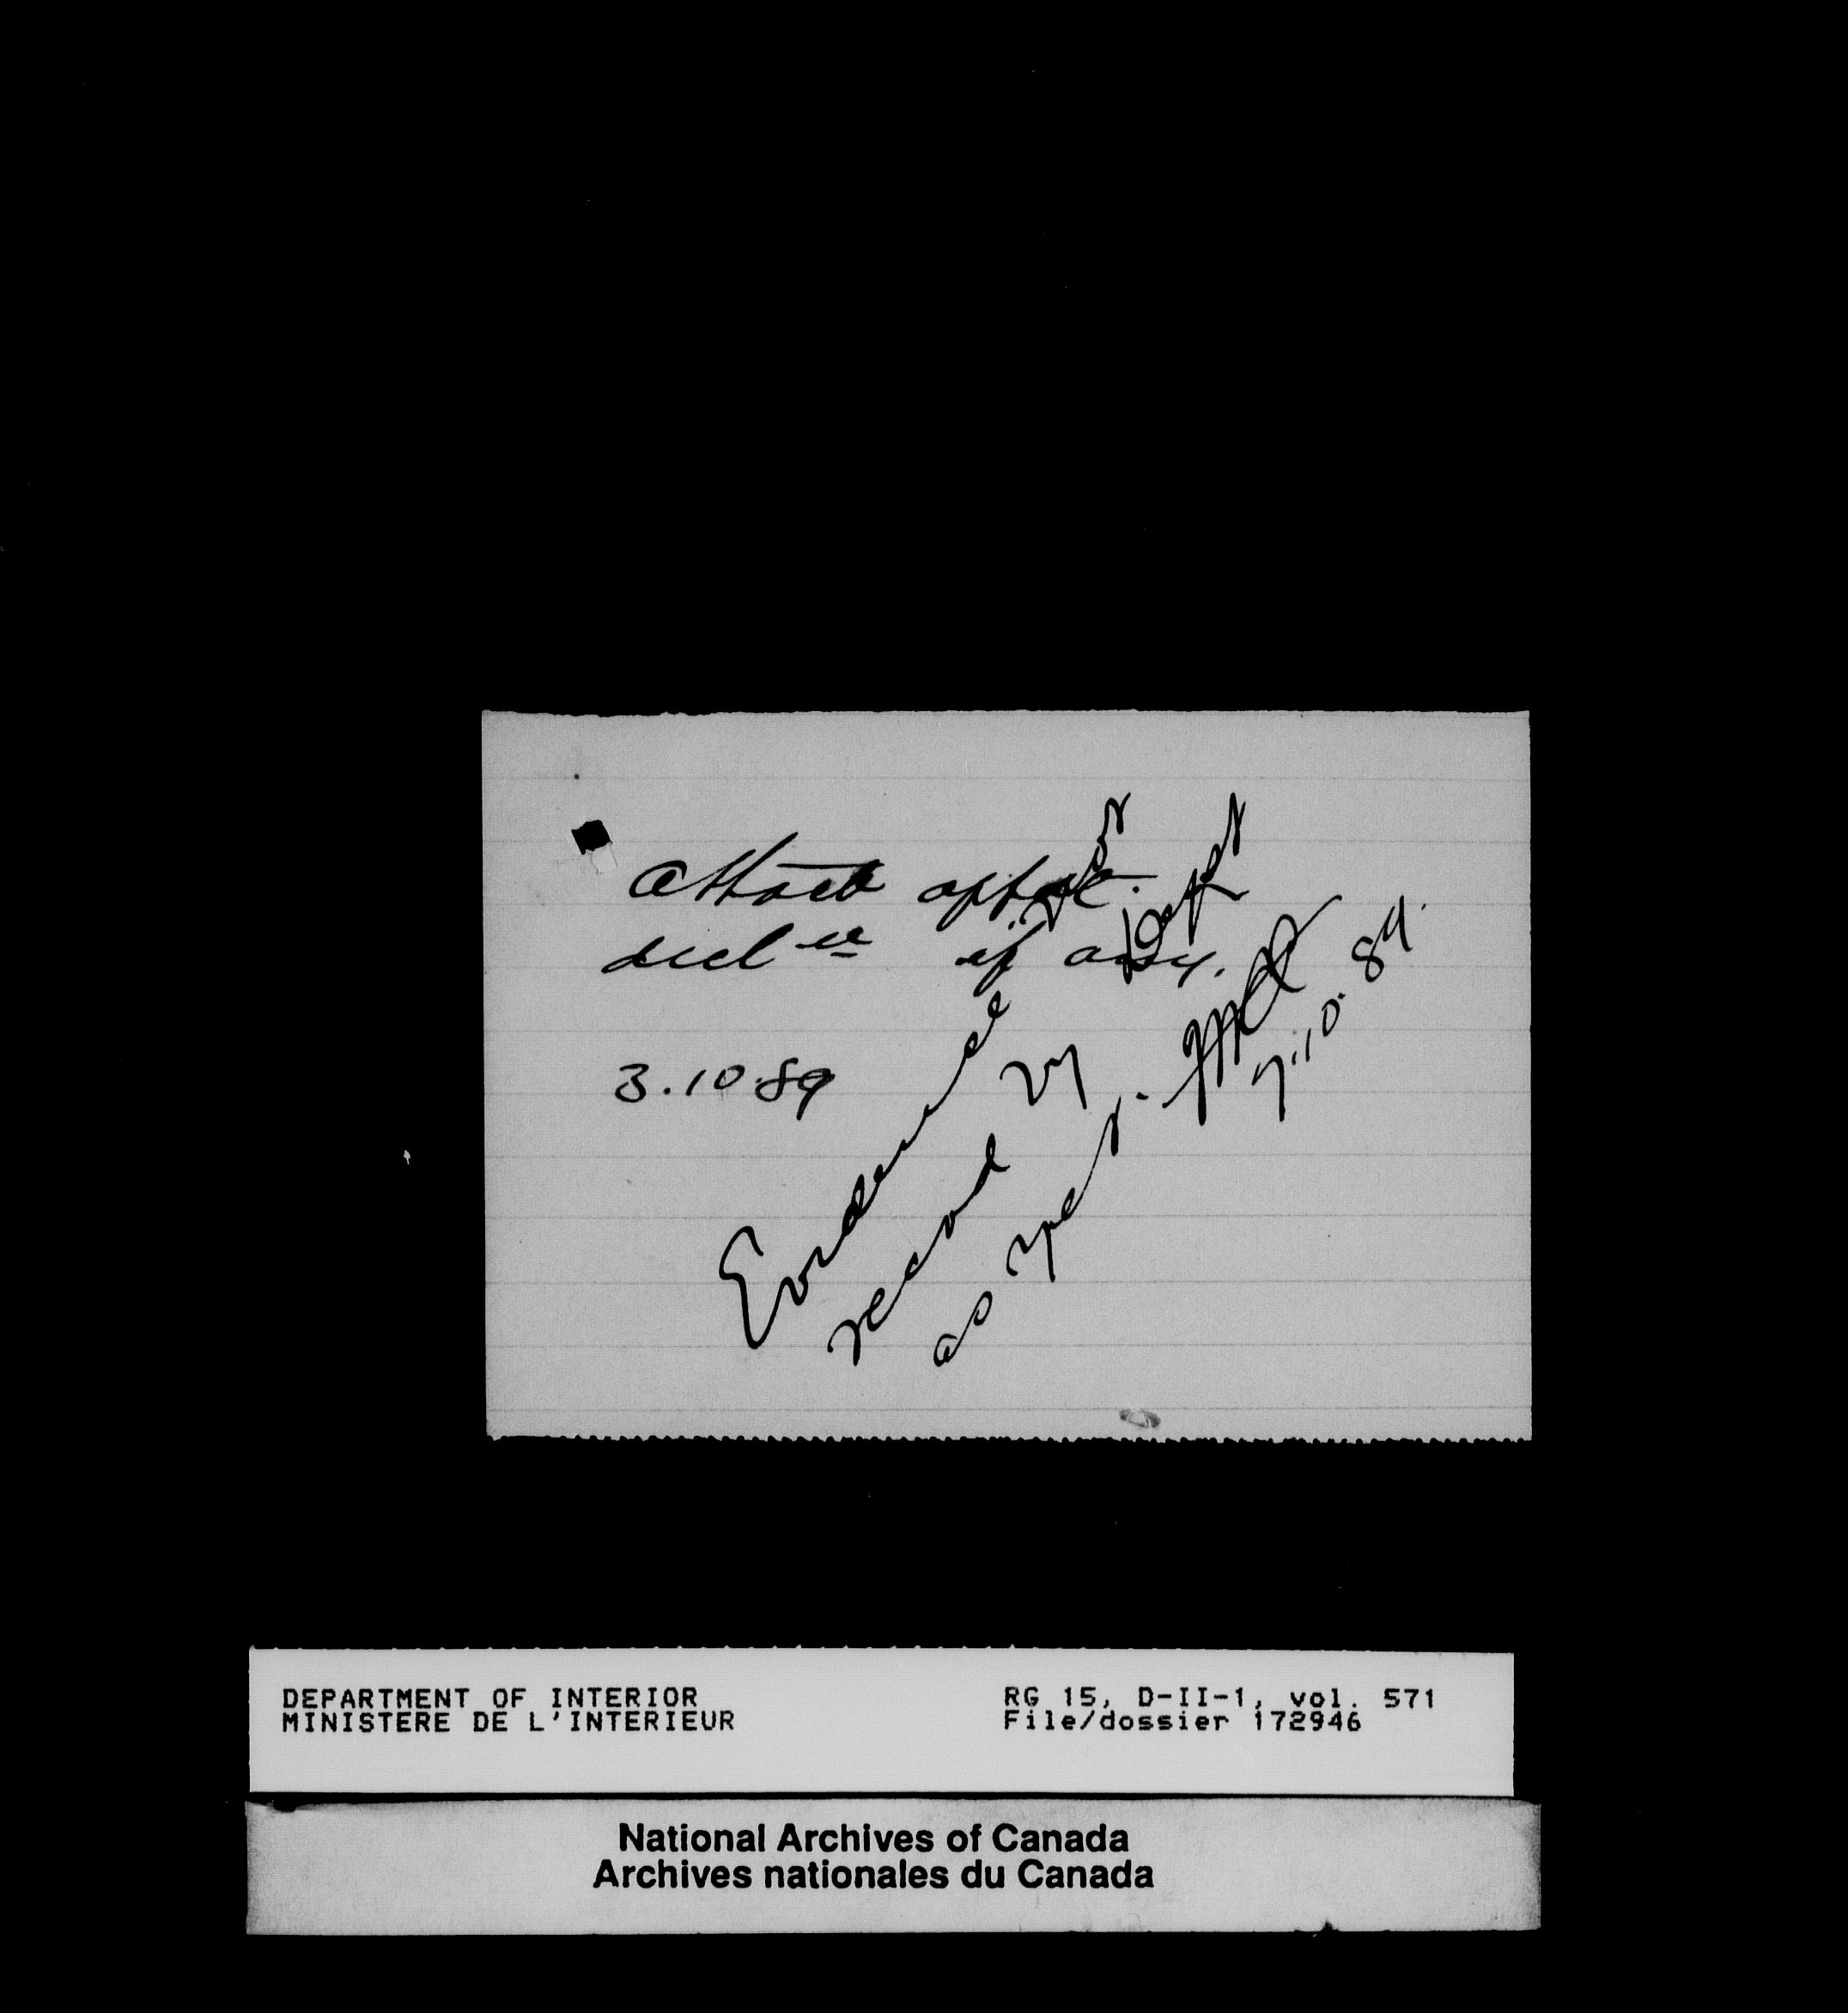 Attach applic.
decl re if any.
3.10.89
Evidence not
recvd by Dept
as yet.
7.10.89.
DEPARTMENT OF INTERIOR
MINISTERE DE L'INTERIEUR
RG 15, D-II-1, vol. 571
File/dossier 172946
National Archives of Canada
Archives nationales du Canada